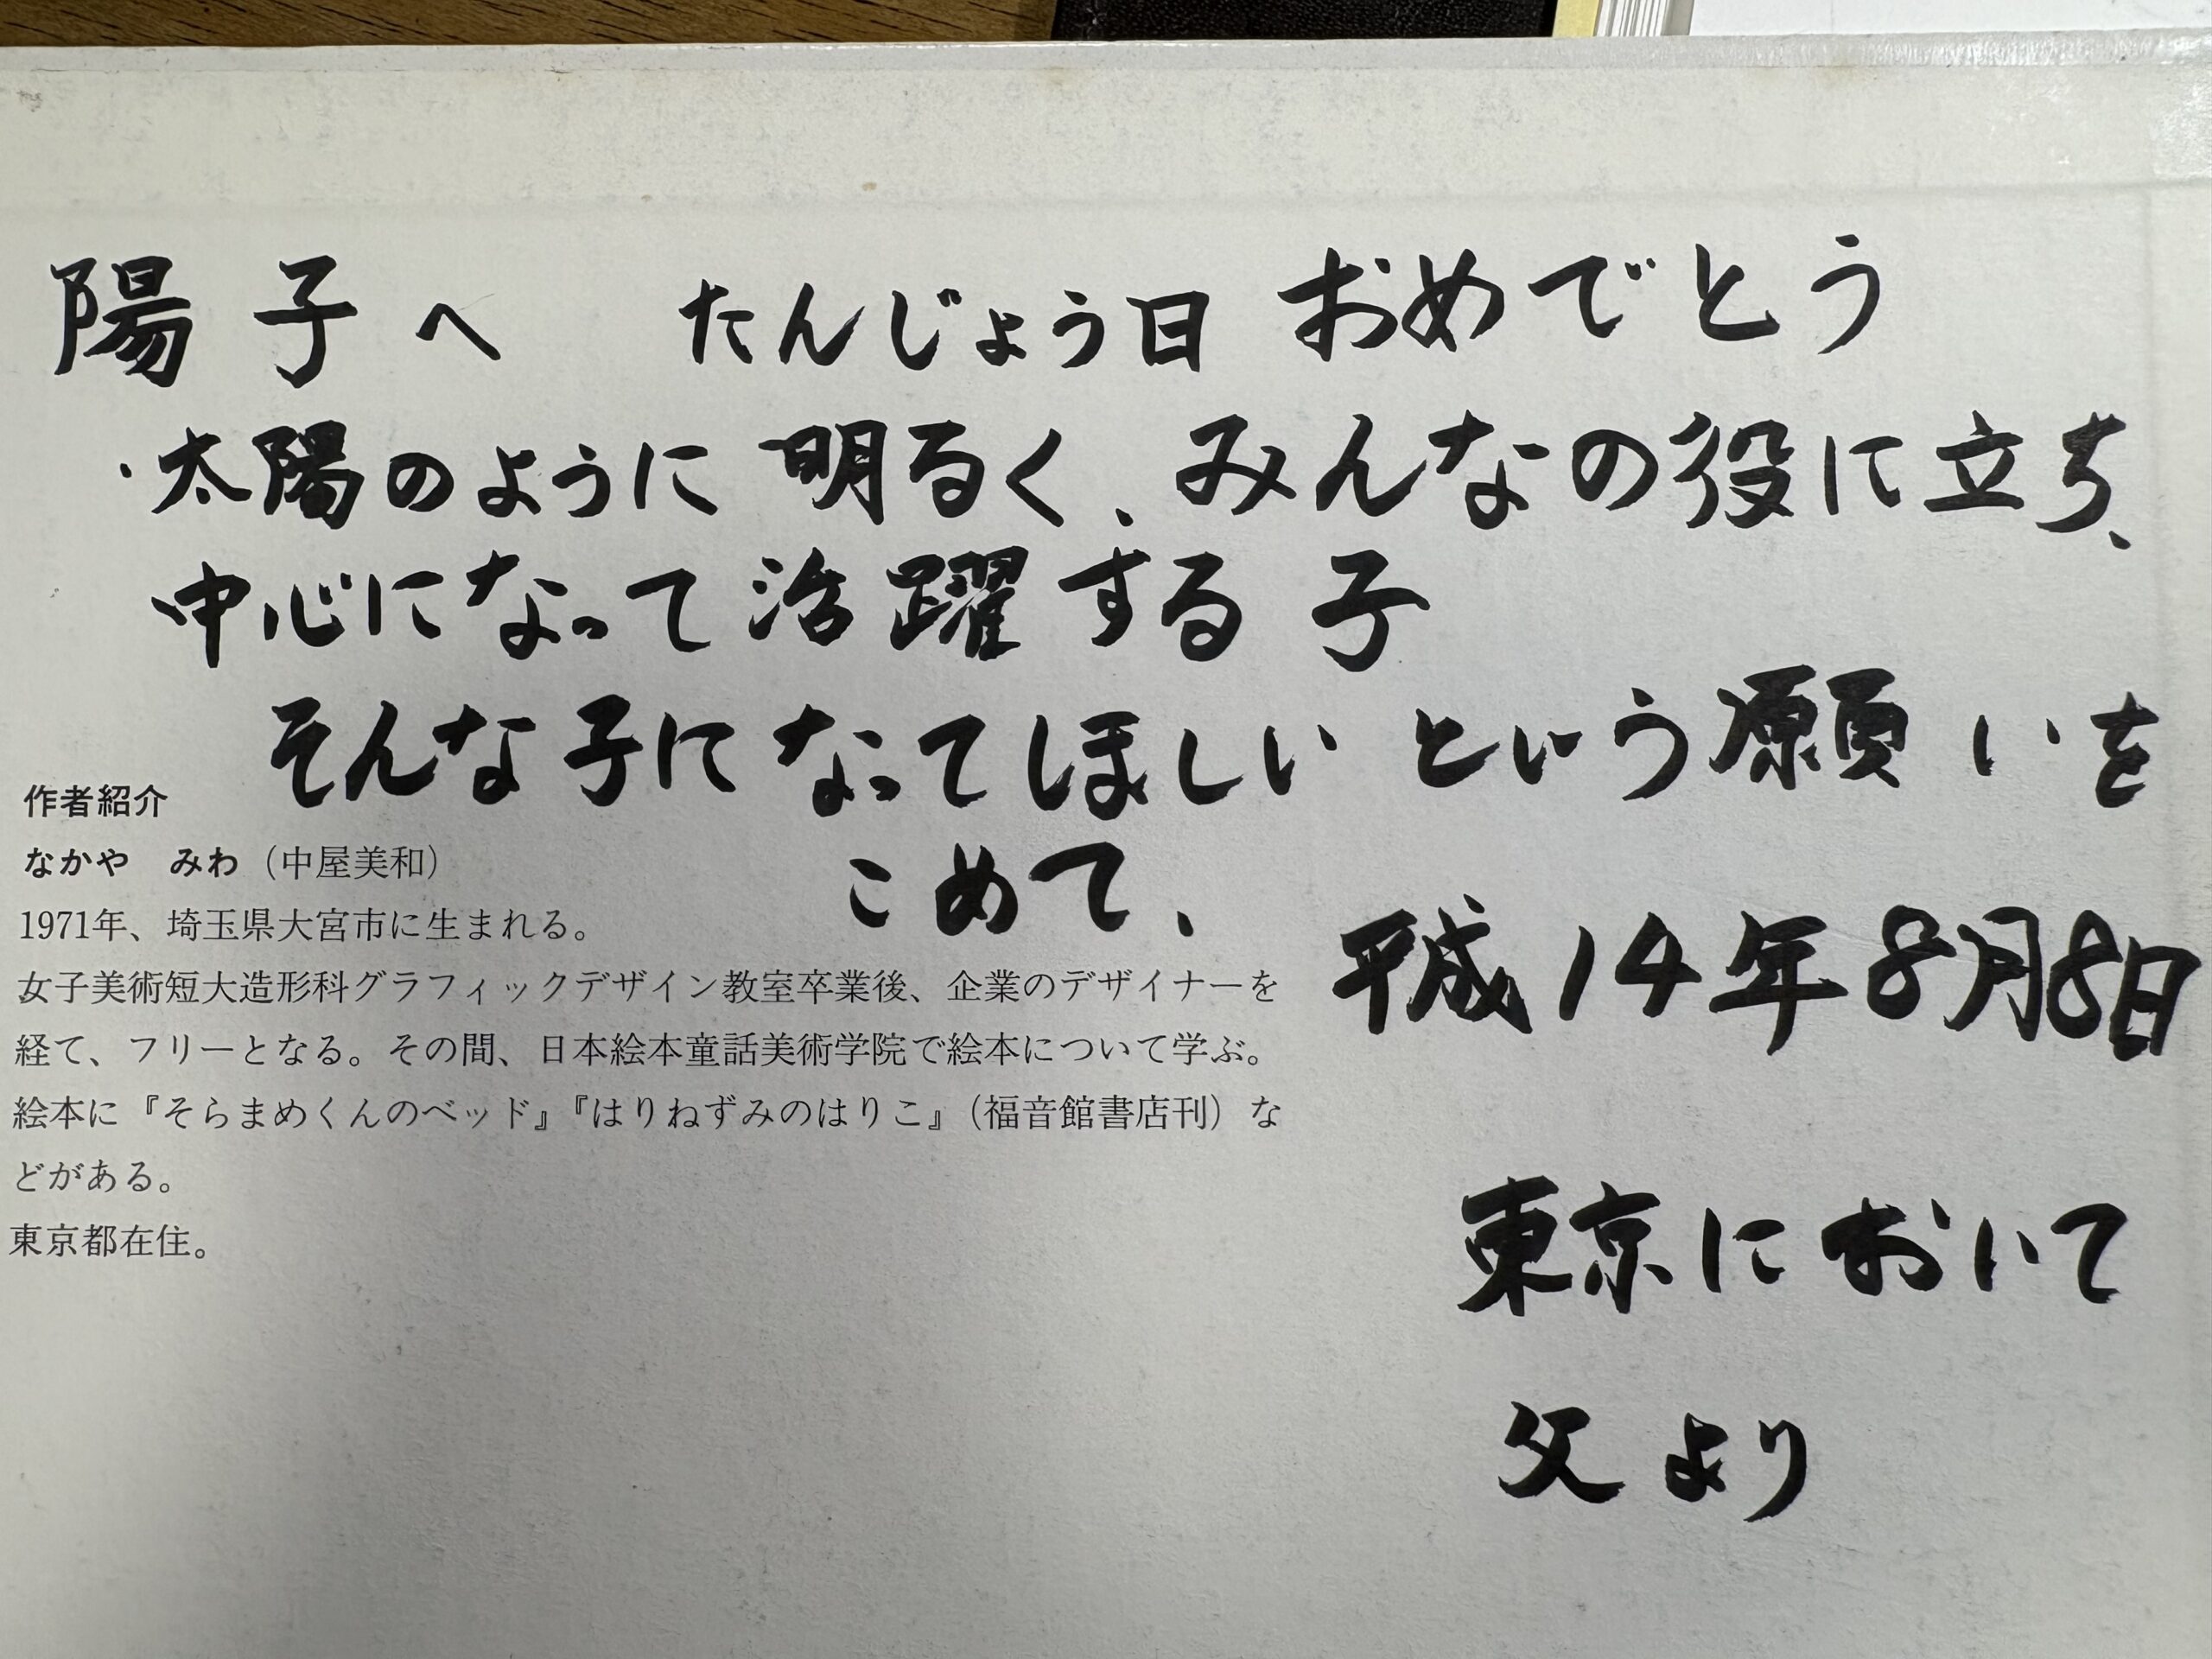 陽子へ　たんじょう日 おめでとう
・太陽のように 明るく、みんなの役に立ち、
中心になって活躍する子
そんな子に なってほしい という願いを
こめて、
平成14年8月8日
東京において
父より
作者紹介
なかや　みわ（中屋美和）
1971年、埼玉県大宮市に生まれる。
女子美術短大造形科グラフィックデザイン教室卒業後、企業のデザイナーを
経て、フリーとなる。その間、日本絵本童話美術学院で絵本について学ぶ。
絵本に『そらまめくんのベッド』『はりねずみのはりこ』（福音館書店刊）な
どがある。
東京都在住。